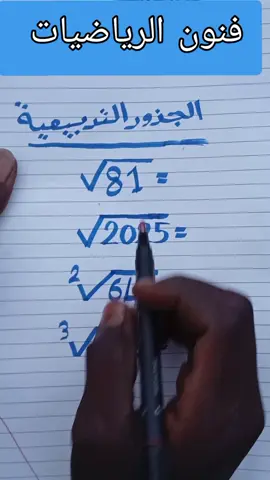 فنون الرياضيات
الجذور التربيعية
√81 =
√2025 =
²√6
³√